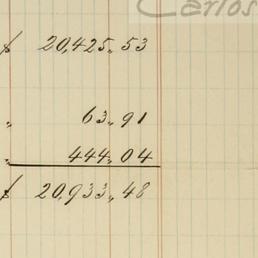 Carlos
$ 20,425.53
" 63.91
" 444.04
$ 20,933.48